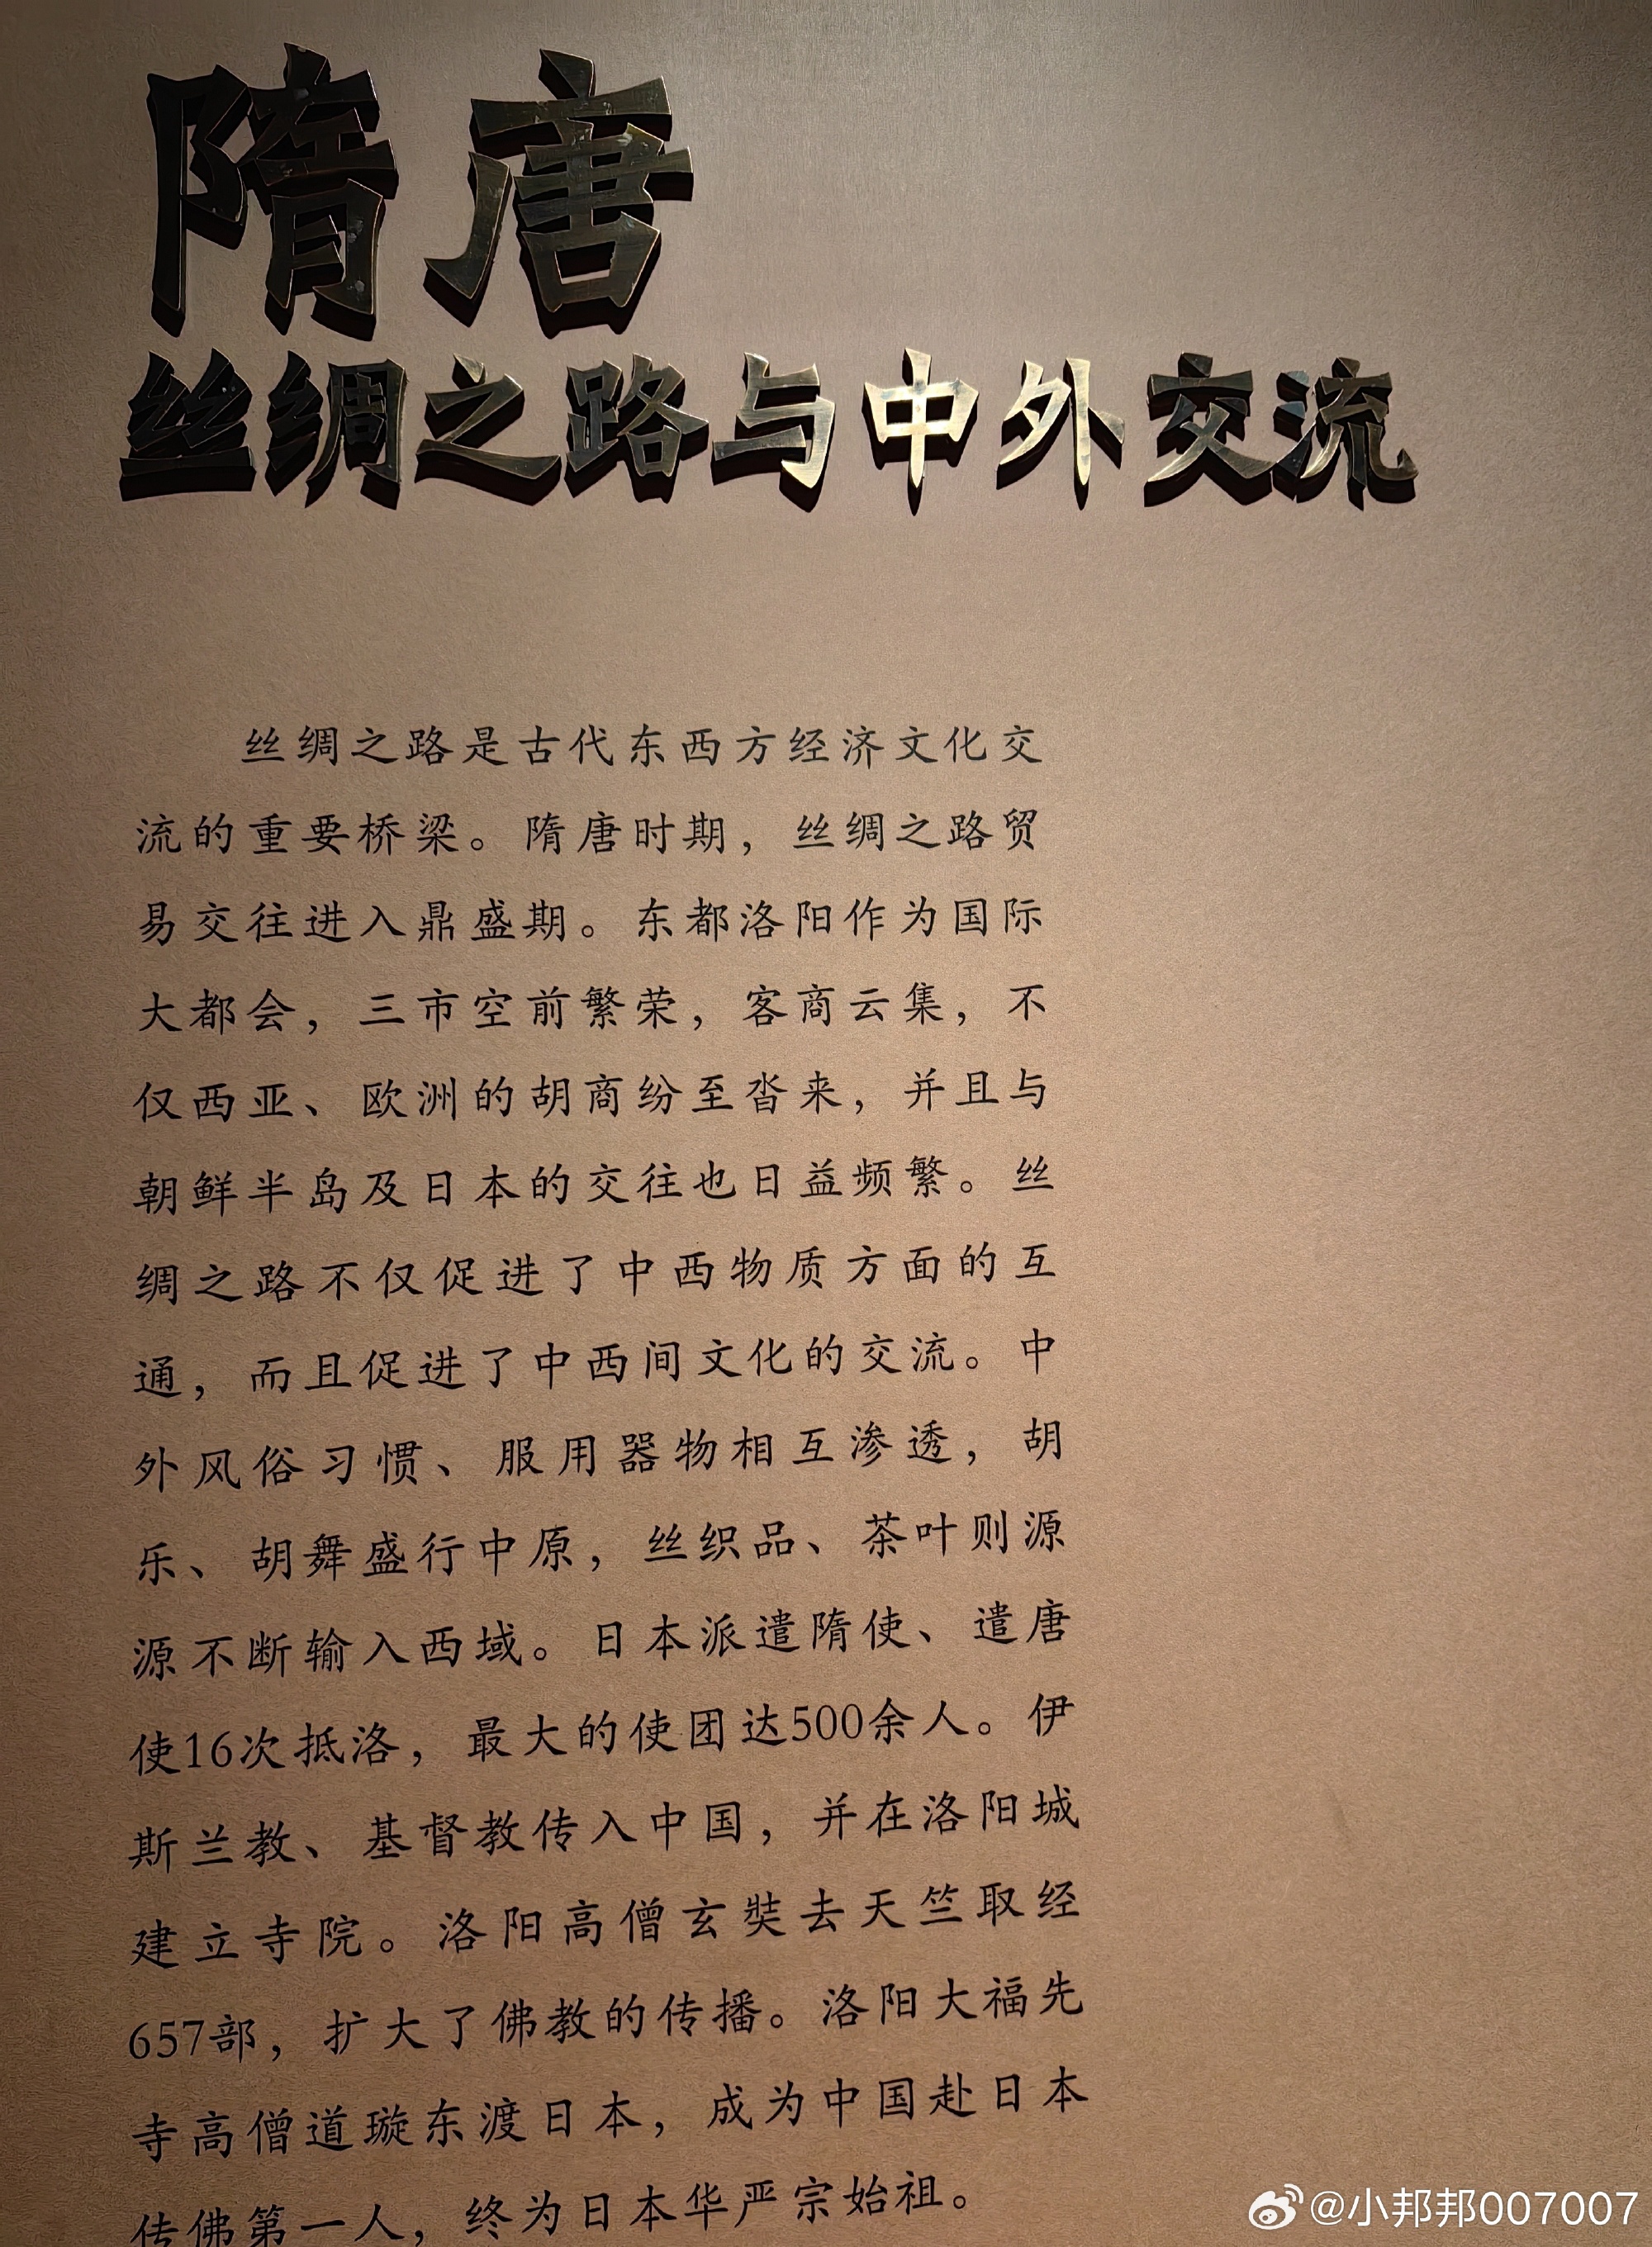 隋唐
丝绸之路与中外交流
丝绸之路是古代东西方经济文化交
流的重要桥梁。隋唐时期，丝绸之路贸
易交往进入鼎盛期。东都洛阳作为国际
大都会，三市空前繁荣，客商云集，不
仅西亚、欧洲的胡商纷至沓来，并且与
朝鲜半岛及日本的交往也日益频繁。丝
绸之路不仅促进了中西物质方面的互
通，而且促进了中西间文化的交流。中
外风俗习惯、服用器物相互渗透，胡
乐、胡舞盛行中原，丝织品、茶叶则源
源不断输入西域。日本派遣隋使、遣唐
使16次抵洛，最大的使团达500余人。伊
斯兰教、基督教传入中国，并在洛阳城
建立寺院。洛阳高僧玄奘去天竺取经
657部，扩大了佛教的传播。洛阳大福先
寺高僧道璇东渡日本，成为中国赴日本
传佛第一人，终为日本华严宗始祖。
@小邦邦007007